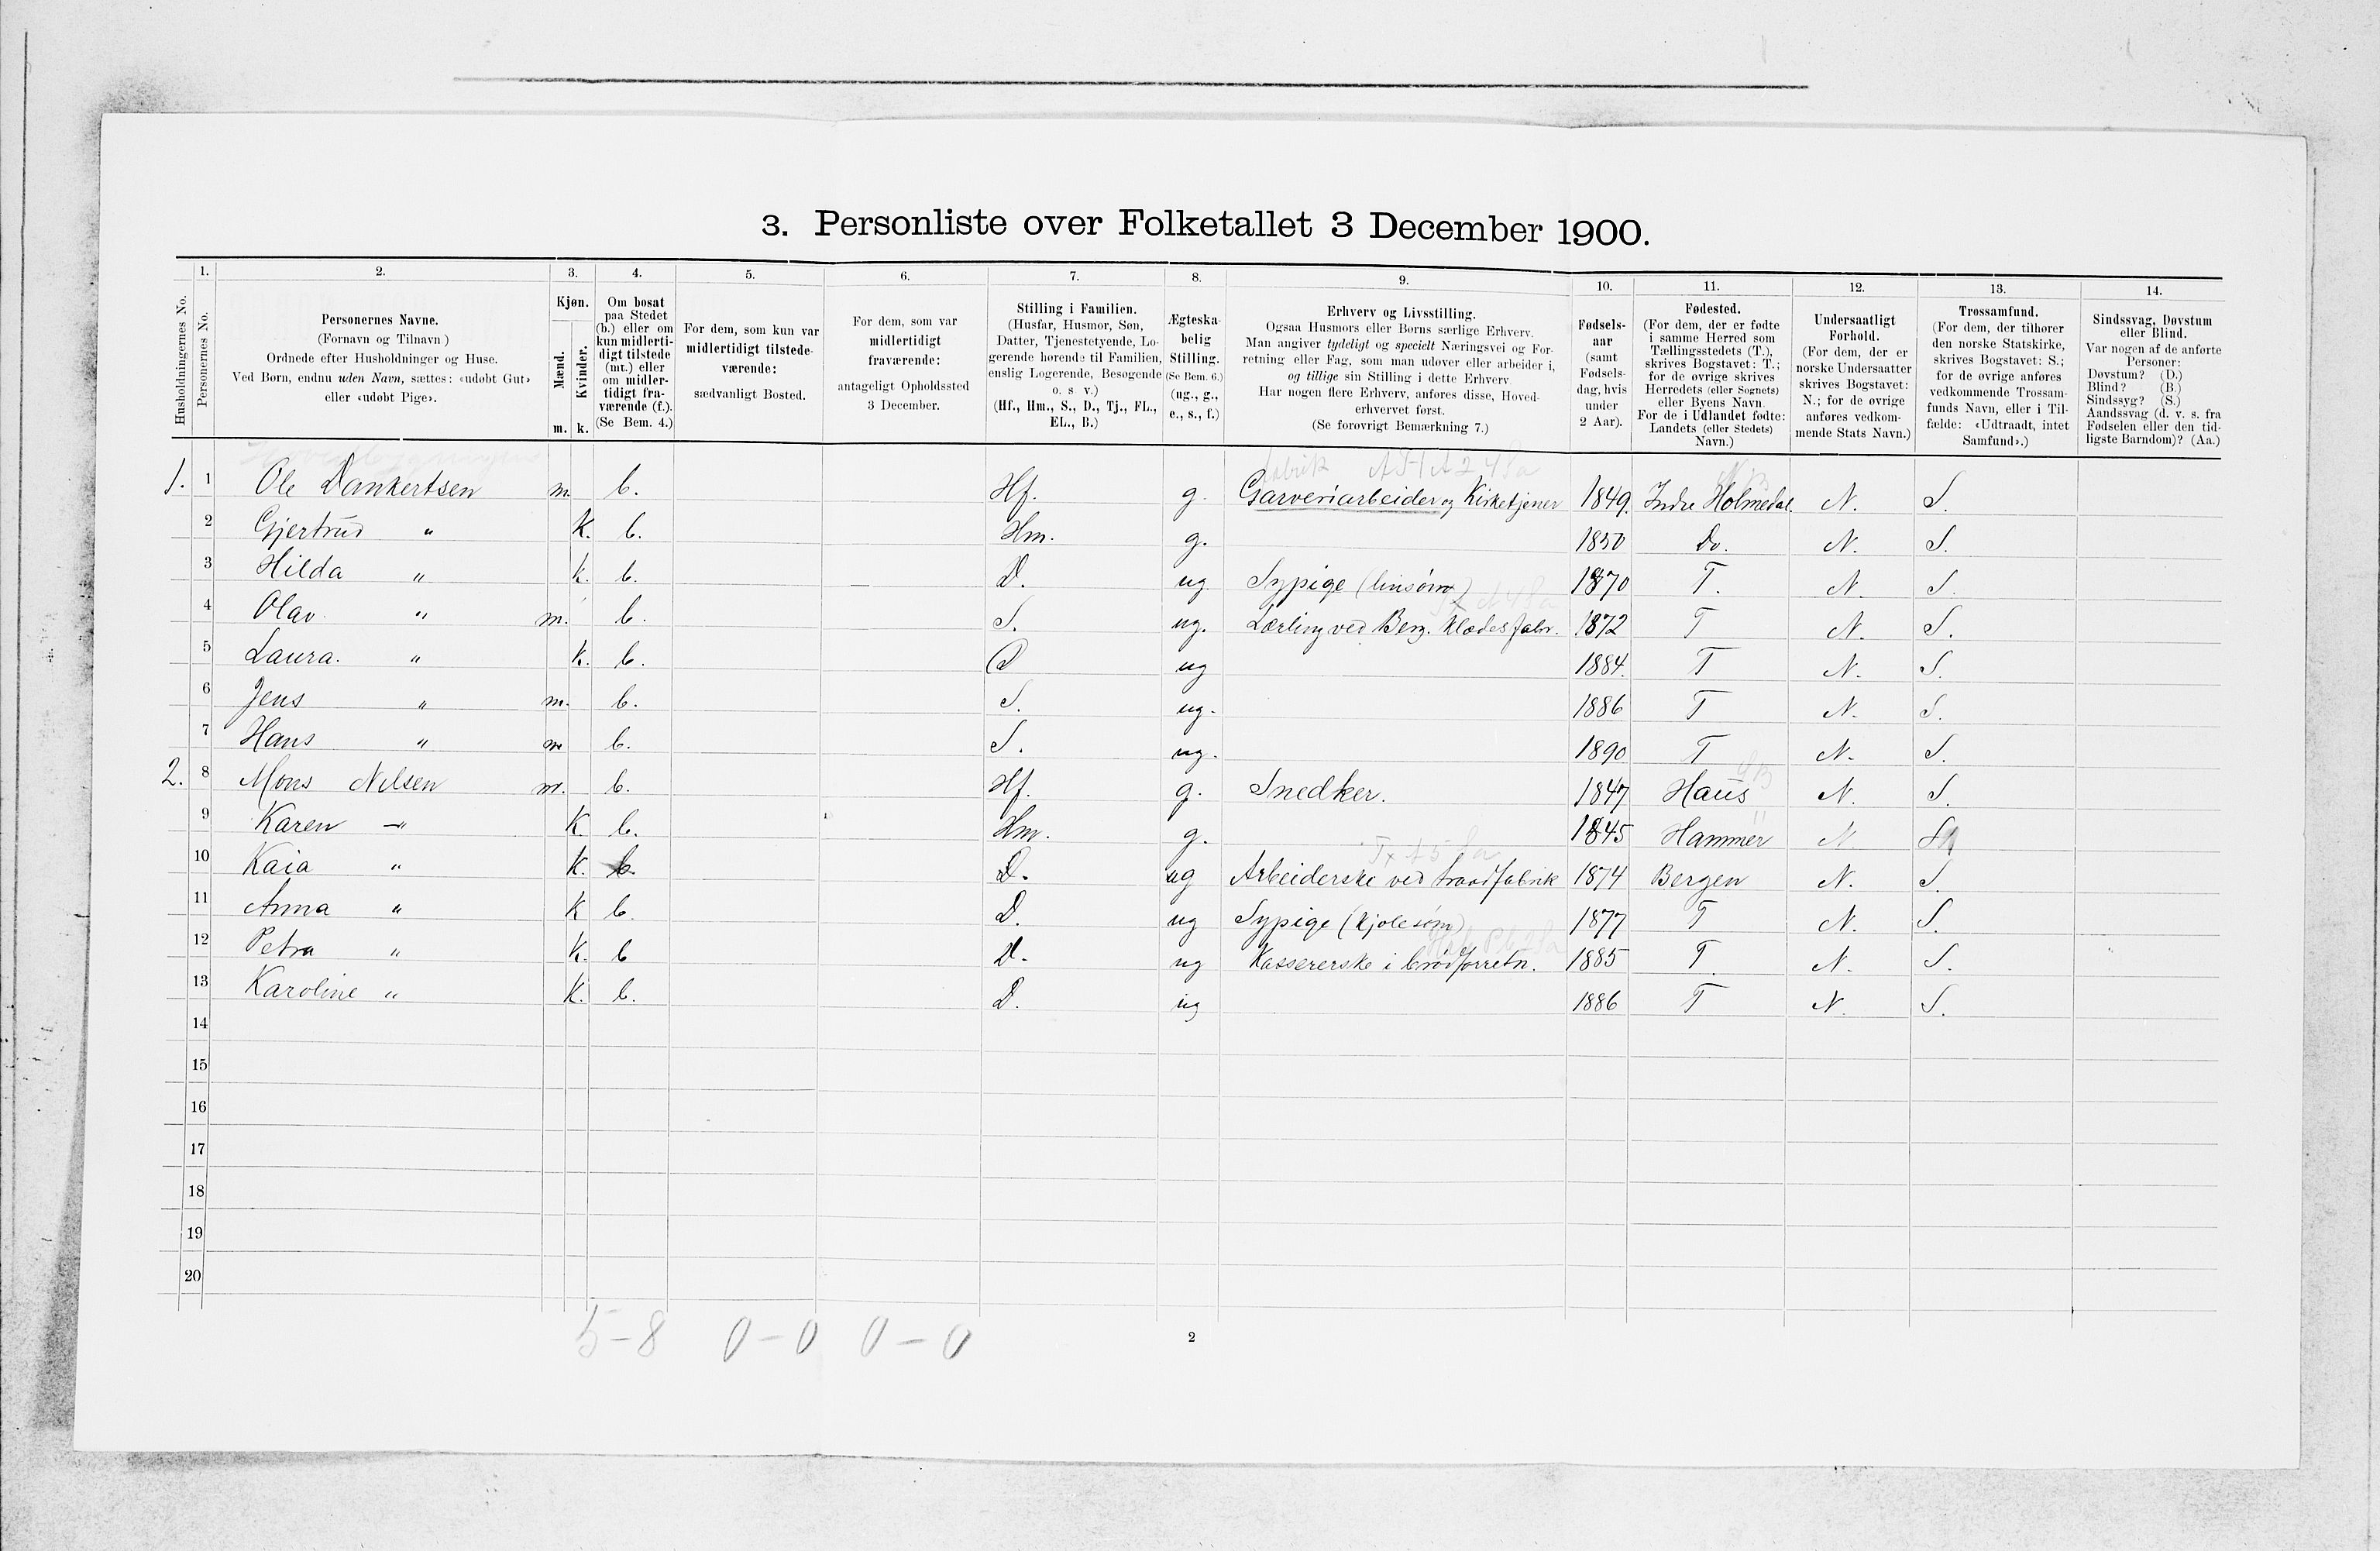 3. Personliste over Folketallet 3 December 1900.
1. 2. 3. 4. 5. 6. 7. 8. 9. 10. 11. 12. 13. 14.
Husholdningernes No.
Personernes No.
Personernes Navne.
(Fornavn og Tilnavn)
Ordnede efter Husholdninger og Huse.
Ved Børn, endnu uden Navn, sættes: «udøbt Gut»
eller «udøbt Pige».
Kjøn.
Mænd.
Kvinder.
m. k.
Om bosat
paa Stedet
(b.) eller om
kun midlerti-
digt tilstede
(mt.) eller
om midler-
tidigt fra-
værende (f.).
(Se Bem. 4.)
For dem, som kun var
midlertidigt tilstede-
værende:
sædvanligt Bosted.
For dem, som var
midlertidigt
fraværende:
antageligt Opholdssted
3 December.
Stilling i Familien.
(Husfar, Husmor, Søn,
Datter, Tjenestetyende, Lo-
gerende hørende til Familien,
enslig Logerende, Besøgende
o. s. v.)
(Hf., Hm., S., D., Tj., FL.,
EL., B.)
Ægteska-
belig
Stilling.
(Se Bem. 6.)
(ug., g.,
e., s., f.)
Erhverv og Livsstilling.
Ogsaa Husmors eller Børns særlige Erhverv.
Man angiver tydeligt og specielt Næringsvei og For-
retning eller Fag, som man udøver eller arbeider i,
og tillige sin Stilling i dette Erhverv.
Har nogen flere Erhverv, anføres disse, Hoved-
erhvervet først.
(Se forøvrigt Bemærkning 7.)
Fødsels-
aar
(samt
Fødsels-
dag, hvis
under
2 Aar).
Fødested.
(For dem, der er fødte
i samme Herred som
Tællingsstedets (T.),
skrives Bogstavet: T.;
for de øvrige skrives
Herredets (eller Sognets)
eller Byens Navn.
For de i Udlandet fødte:
Landets (eller Stedets)
Navn.)
Undersaatligt
Forhold.
(For dem, der er
norske Undersaatter
skrives Bogstavet:
N.; for de øvrige
anføres vedkom-
mende Stats Navn.)
Trossamfund.
(For dem, der tilhører
den norske Statskirke,
skrives Bogstavet: S.;
for de øvrige anføres
vedkommende Trossam-
funds Navn, eller i Til-
fælde: «Udtraadt, intet
Samfund».)
Sindssvag, Døvstum
eller Blind.
Var nogen af de anførte
Personer:
Døvstum? (D.)
Blind? (B.)
Sindssyg? (S.)
Aandssvag (d. v. s. fra
Fødselen eller den tid-
ligste Barndom)? (Aa.)
1. 1 Ole Dankertsen m. b. Hf. g. Garveriarbeider og Kirketjener 1849. Indre Holmedal. N. S.
2 Gjertrud " K. b. Hm. g. 1850 Do. N. S.
3 Hilda " k. b. D. ug Sypige (linsøm) 1870 T. N. S.
4 Olav " m. b. S. ug. Lærling ved Berg. Klædesfabr. 1872 T N. S.
5 Laura. " K. b. D ug 1884. T N. S.
6 Jens " m. b. S. ug. 1886 T N. S.
7 Hans " m b. S. ug. 1890 T N. S.
2. 8 Mons Nilsen m. b. Hf. g. Snedker. 1847 Haus N. S.
9 Karen —" K. b. Hm. g. 1845 Hammer N. S
10 Kaia " K. b. D. ug Arbeiderske ved traadfabrik 1874 Bergen N. S.
11 Anna " K b. D. ug Sypige (Kjolesøm) 1877 T N. S.
12 Petra " K. b D. ug Kassererske i brødforretn. 1885 T. N. S.
13 Karoline " K. b. D. ug 1886 T N. S.
14
15
16
17
18
19
20
5-8 0-0 0-0
2